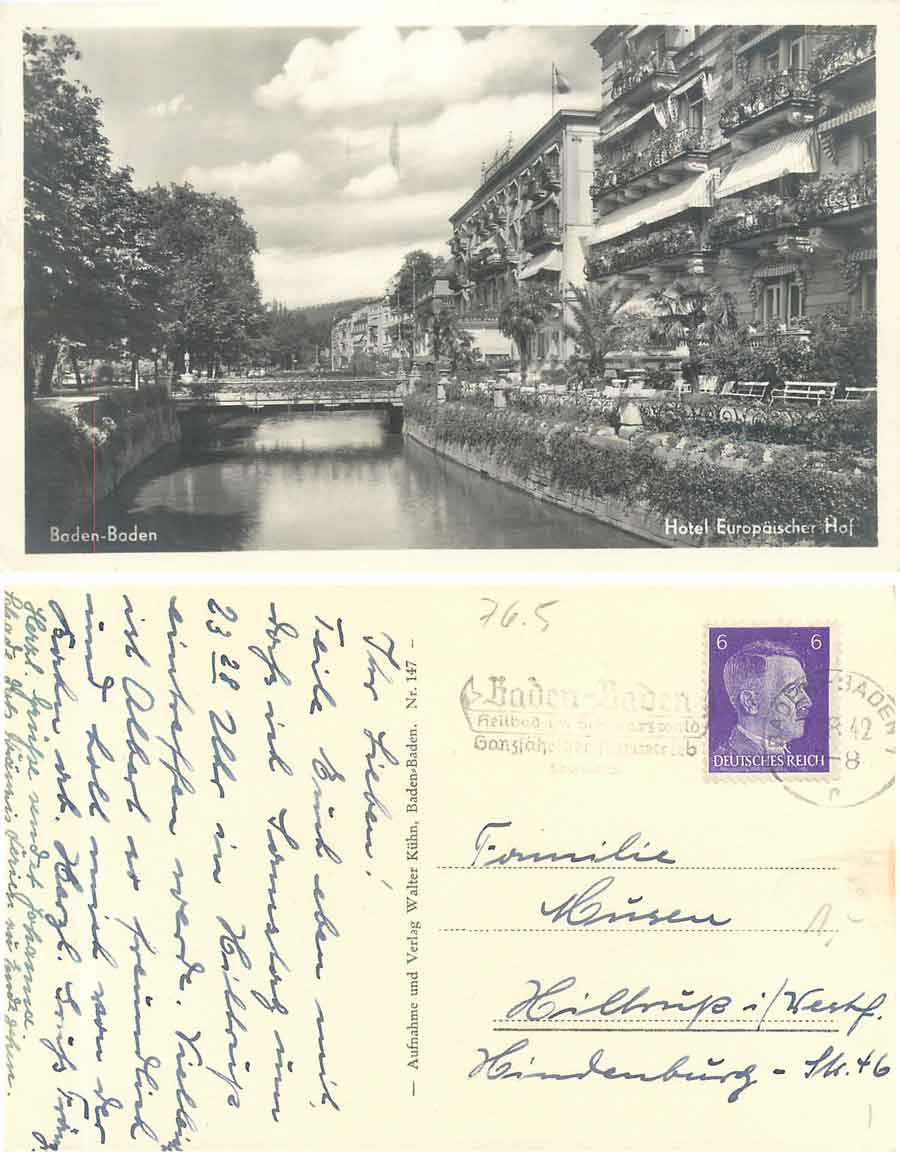 Baden-Baden
Hotel Europäischer Hof
76.5
Baden-Baden
Heilbad im Schwarzwald
Ganzjähriger Kurbetrieb
6 6
DEUTSCHES REICH
BADEN-BADEN
42
8
Ihr Lieben!
Teile Euch eben mit,
daß ich Samstag um
23 28 Uhr in Hiltrup
eintreffen werde. Vielleicht
ist Albert so freundlich
und holt mich von der
Bahn ab. Herzl. Gruß Fränz
Herzl. Grüße sendet Johanna.
Schade, daß die Ferien zu Ende gehen.
– Aufnahme und Verlag Walter Kühn, Baden-Baden. Nr. 147 –
Familie
Musen
Hiltrup i/Westf.
Hindenburg-Str. 46